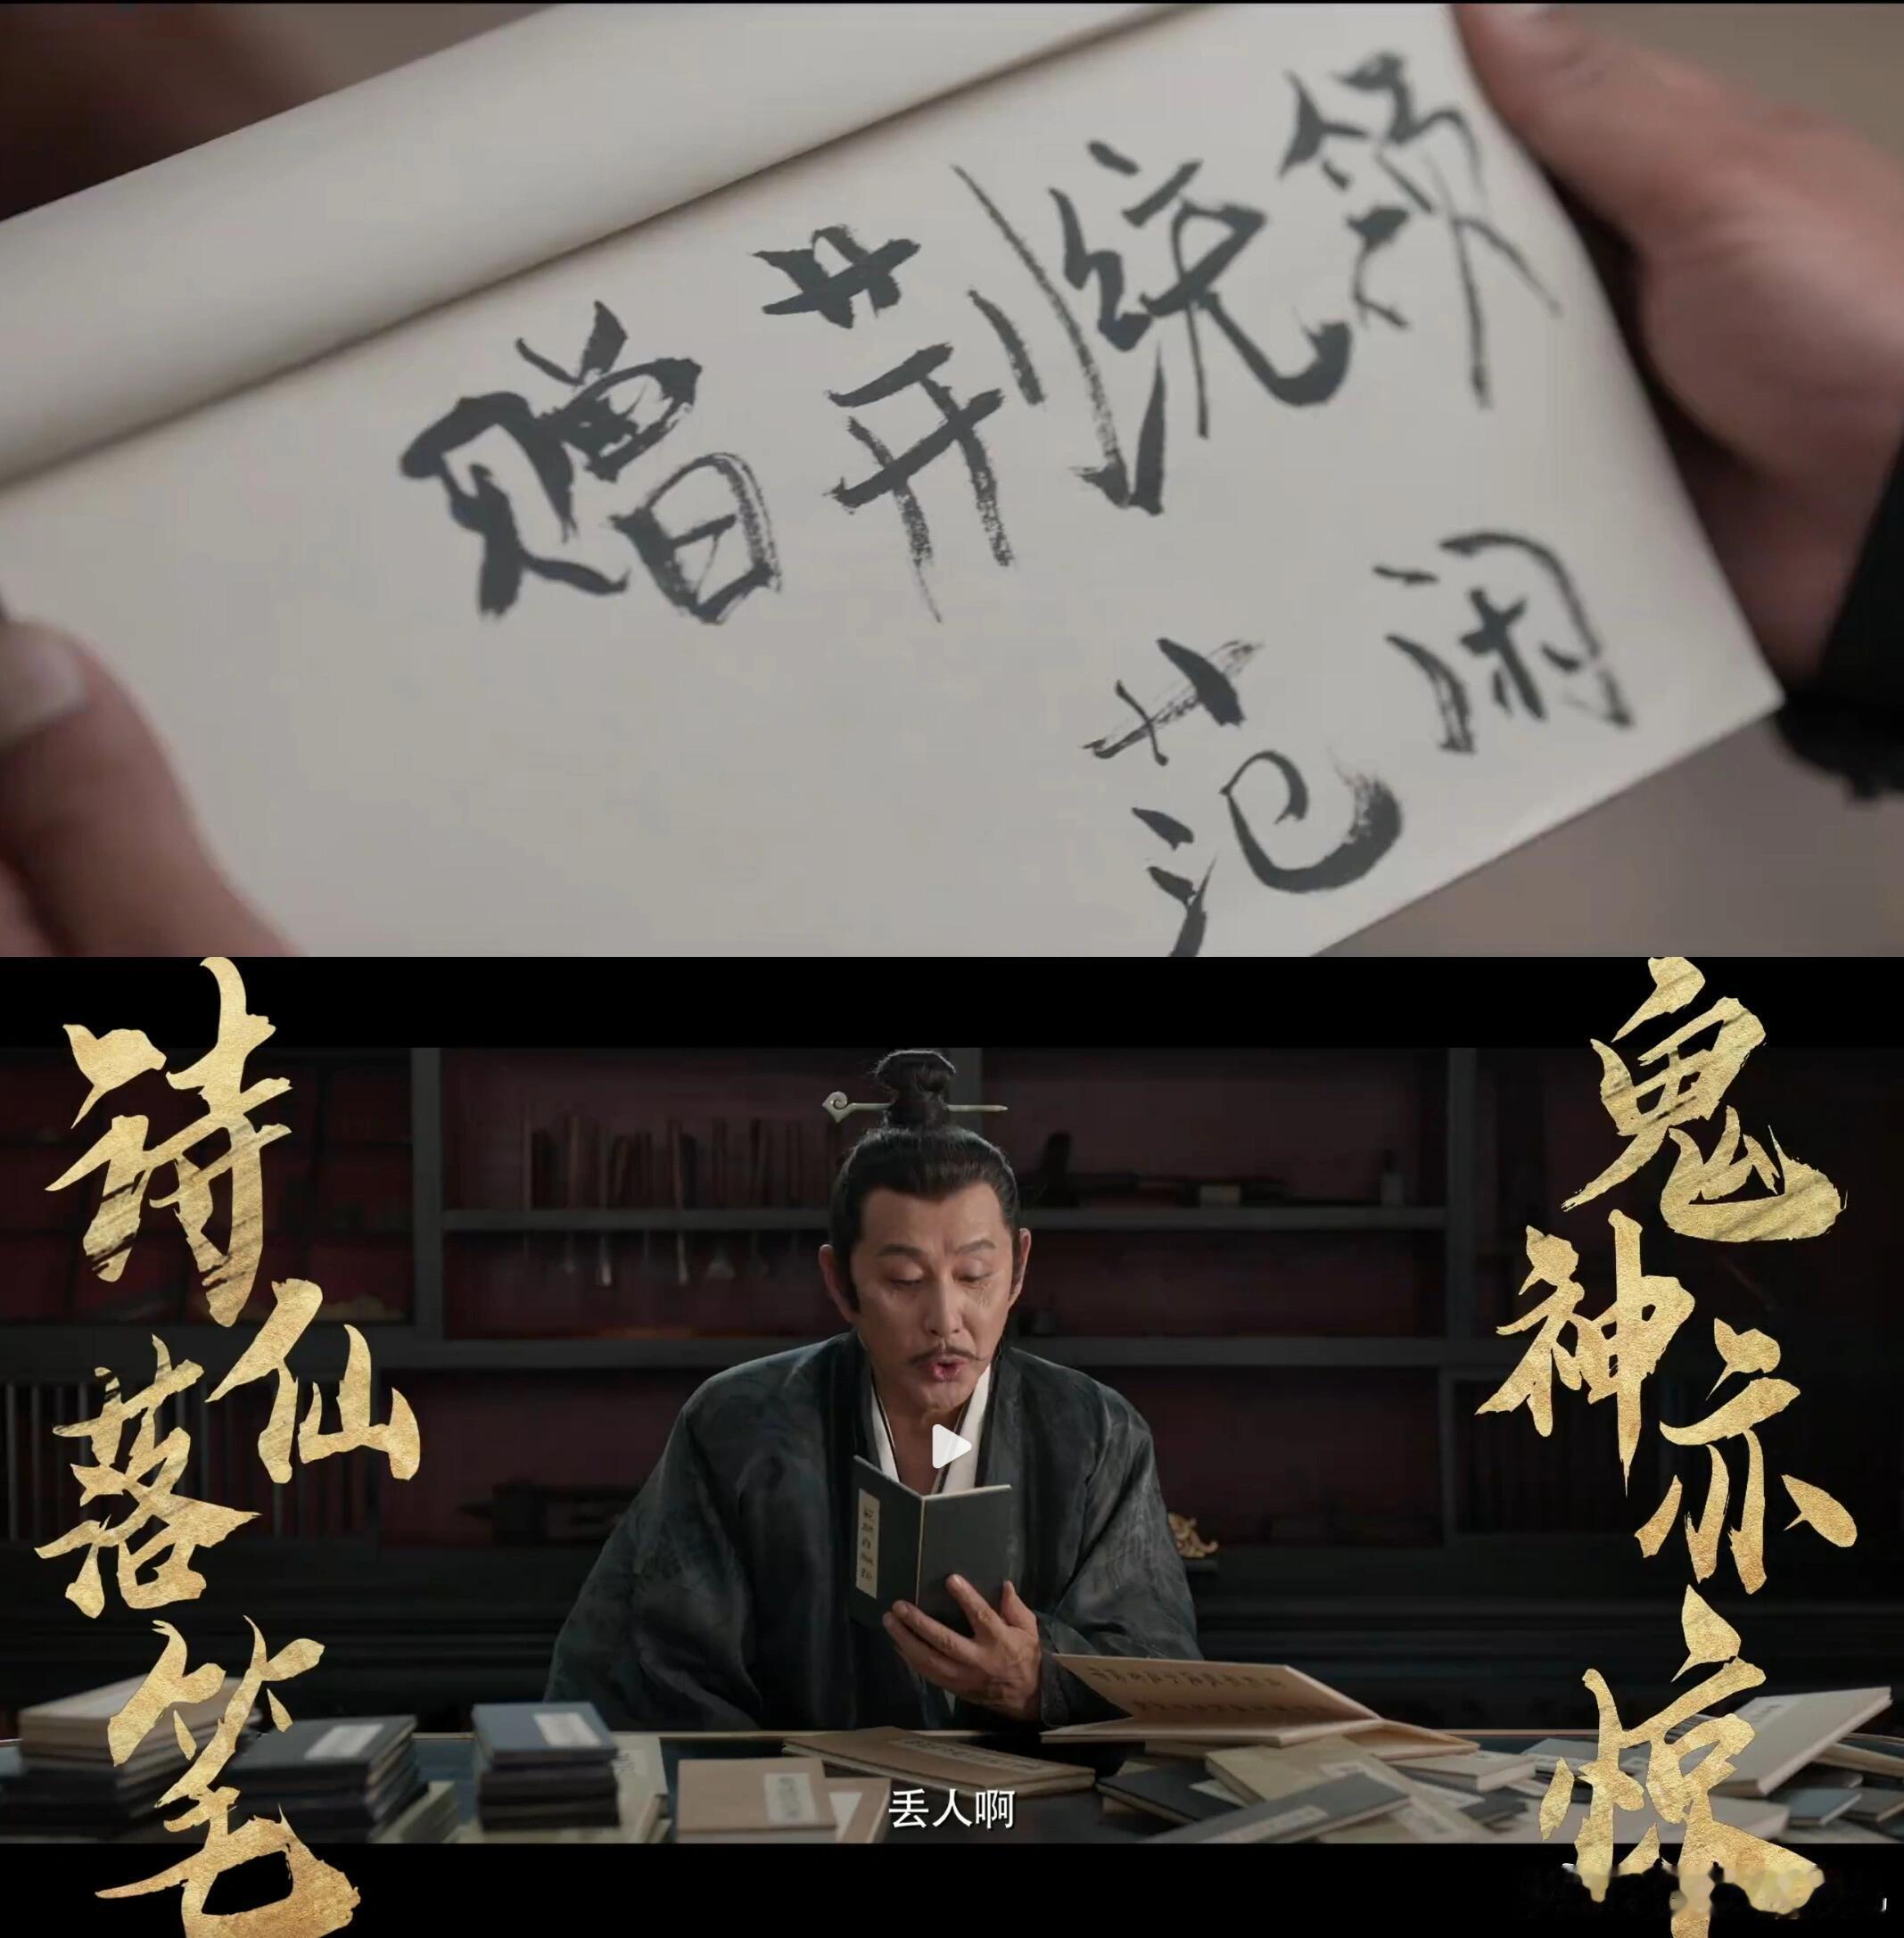 赠荆统领
范闲
诗仙落笔
鬼神亦惊
丢人啊